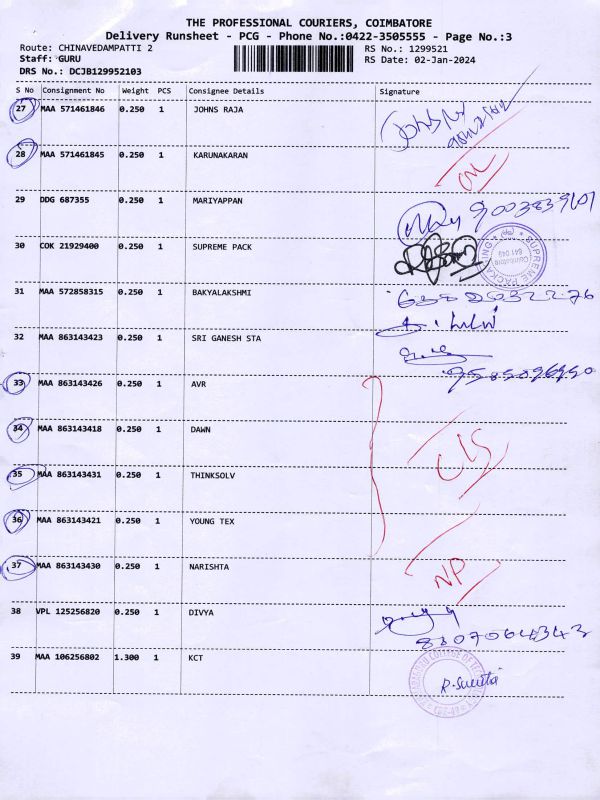 THE PROFESSIONAL COURIERS, COIMBATORE
Delivery Runsheet - PCG - Phone No.:0422-3505555 - Page No.:3
Route: CHINAVEDAMPATTI 2
RS No.: 1299521
Staff: GURU
RS Date: 02-Jan-2024
DRS No.: DCJB129952103
S No Consignment No Weight PCS Consignee Details Signature
27 MAA 571461846 0.250 1 JOHNS RAJA
28 MAA 571461845 0.250 1 KARUNAKARAN
29 DDG 687355 0.250 1 MARIYAPPAN
30 COK 21929400 0.250 1 SUPREME PACK
SUPREME PACKAGING
Coimbatore
641 049
31 MAA 572858315 0.250 1 BAKYALAKSHMI
32 MAA 863143423 0.250 1 SRI GANESH STA
33 MAA 863143426 0.250 1 AVR
34 MAA 863143418 0.250 1 DAWN
35 MAA 863143431 0.250 1 THINKSOLV
36 MAA 863143421 0.250 1 YOUNG TEX
37 MAA 863143430 0.250 1 NARISHTA
NP
38 VPL 125256820 0.250 1 DIVYA
8807064343
39 MAA 106256802 1.300 1 KCT